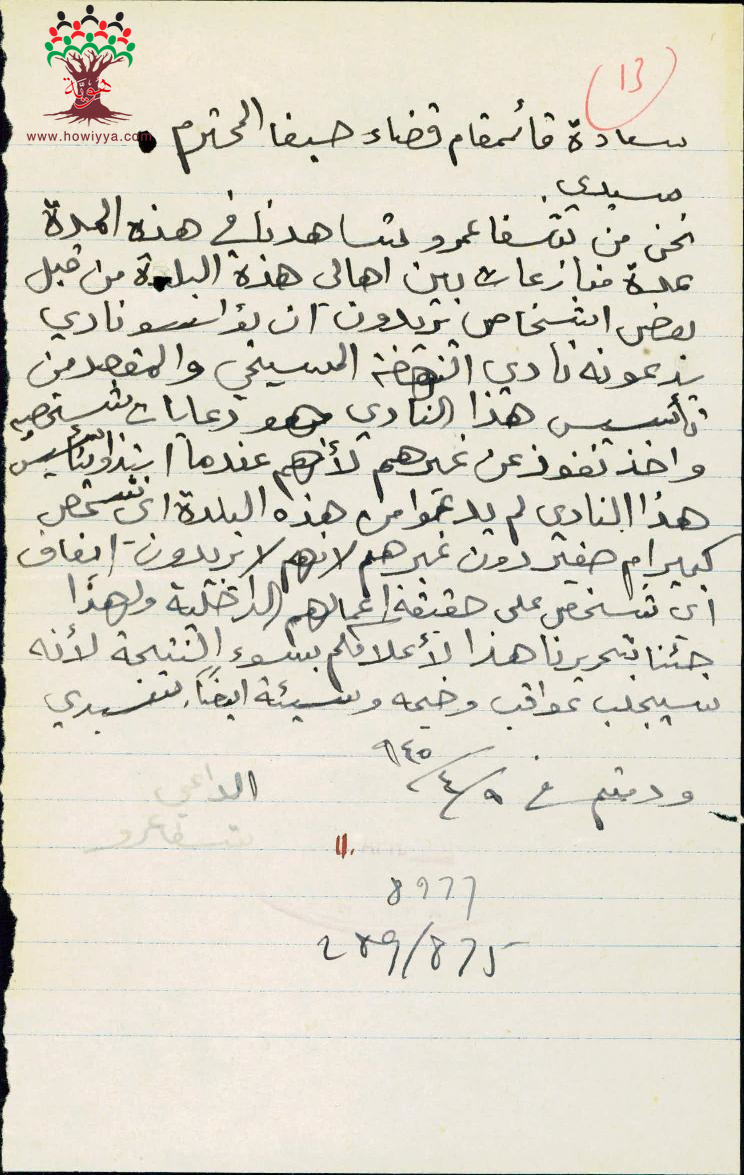 هوية
www.howiyya.com
13
سعادة قائمقام قضاء حيفا المحترم
سيدي.
نحن من شفاعمرو نشاهدنا في هذه المدة
عدة منازعات بين اهالي هذة البلدة من قبل
بعض اشخاص يريدون ان يؤاسسو نادي
يدعونه نادي النهضة المسيحي والمقصد من
تأسيس هذا النادي هو دعايات شخصيه
واخذ نفوذ عن غيرهم لأنهم عندما ابتدأو بتأسيس
هذا النادي لم يدعوا من هذه البلدة اي شخص
كبير ام صغير دون غيرهم لانهم لا يريدون ايقاف
اي شخص على حقيقة اعمالهم الداخلية ولهذا
جئنا بتحريرنا هذا لأعلامكم بسوء النتيجة لأنه
سيجلب عواقب وخيمه وسيئة ايضاً سيدي
ودمتم في ٩/٤/٩٤٥
الداعي
شفاعمرو
11.
8977
289/875